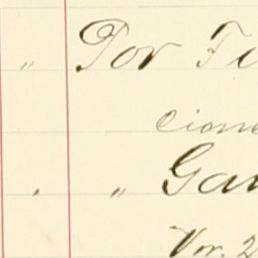 " Por Fi
cione
" " Gau
Nr. 2